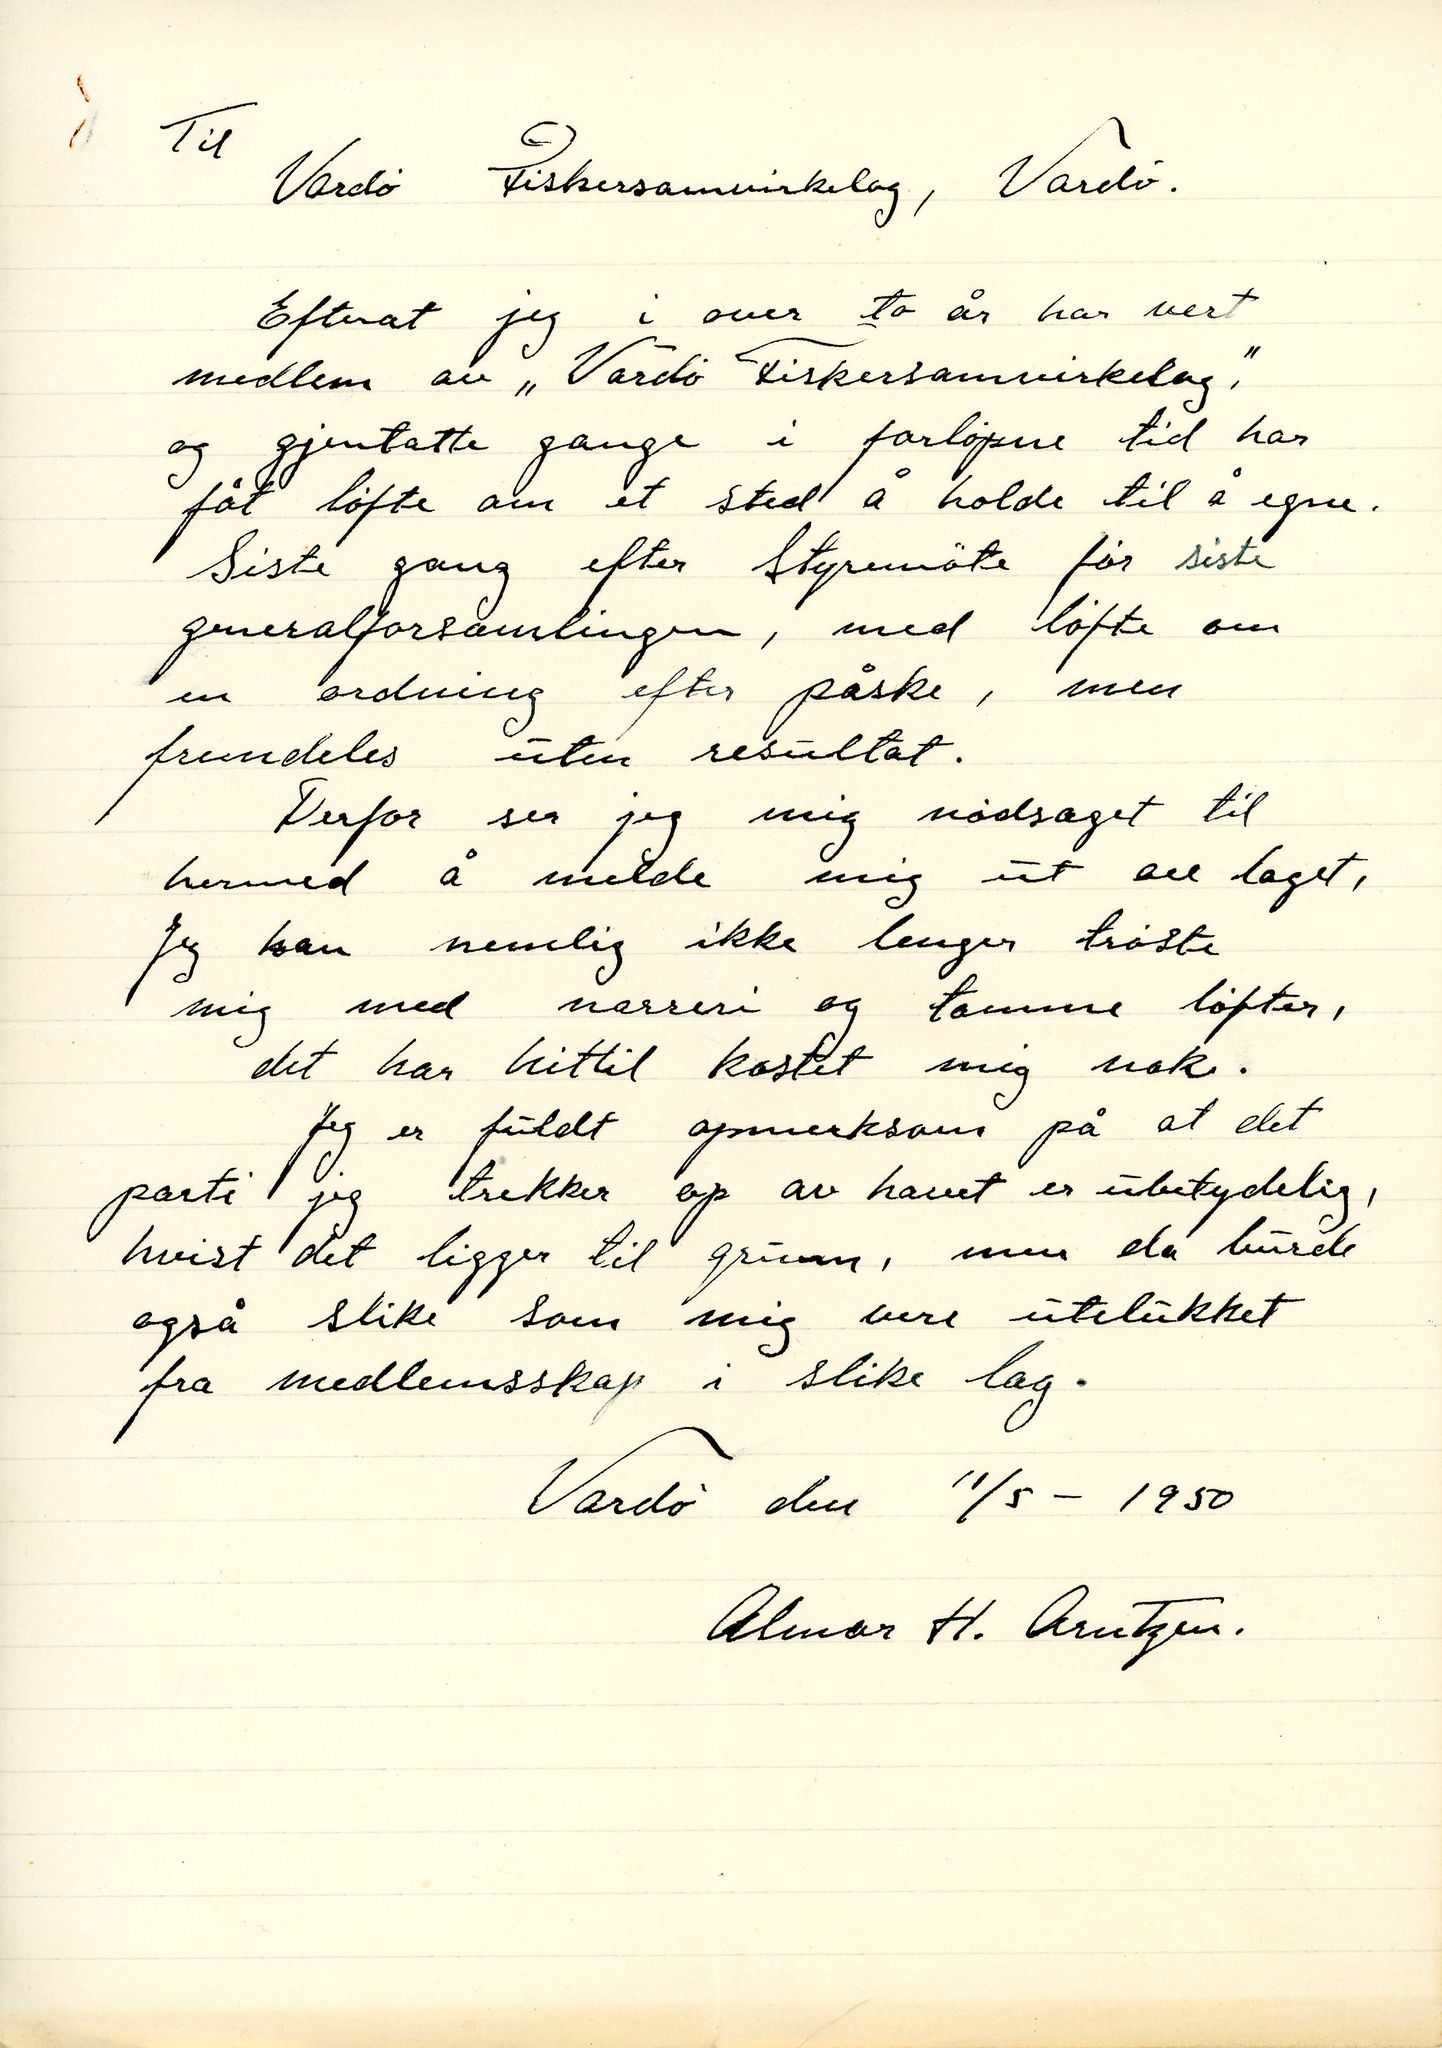 Til
Vardö Fiskersamvirkelag, Vardö.
Efterat jeg i over to år har vert
medlem av „Vardö Fiskersamvirkelag",
og gjentatte gange i forløpne tid har
fåt löfte om et sted å holde til å egne.
Siste gang efter Styremöte för siste
generalforsamlingen, med löfte om
en ordning efter påske, men
fremdeles uten resultat.
Derfor ser jeg mig nödsaget til
hermed å melde mig ut av laget,
Jeg kan nemlig ikke lenger tröste
mig med narreri og tomme löfter,
det har hittil kostet mig nok.
Jeg er fuldt opmerksom på at det
parti jeg trekker op av havet er ubetydelig,
hvist det ligger til grunn, men da burde
også slike som mig vere utelukket
fra medlemsskap i slike lag.
Vardö den 11/5 – 1950
Almar H. Arntzen.